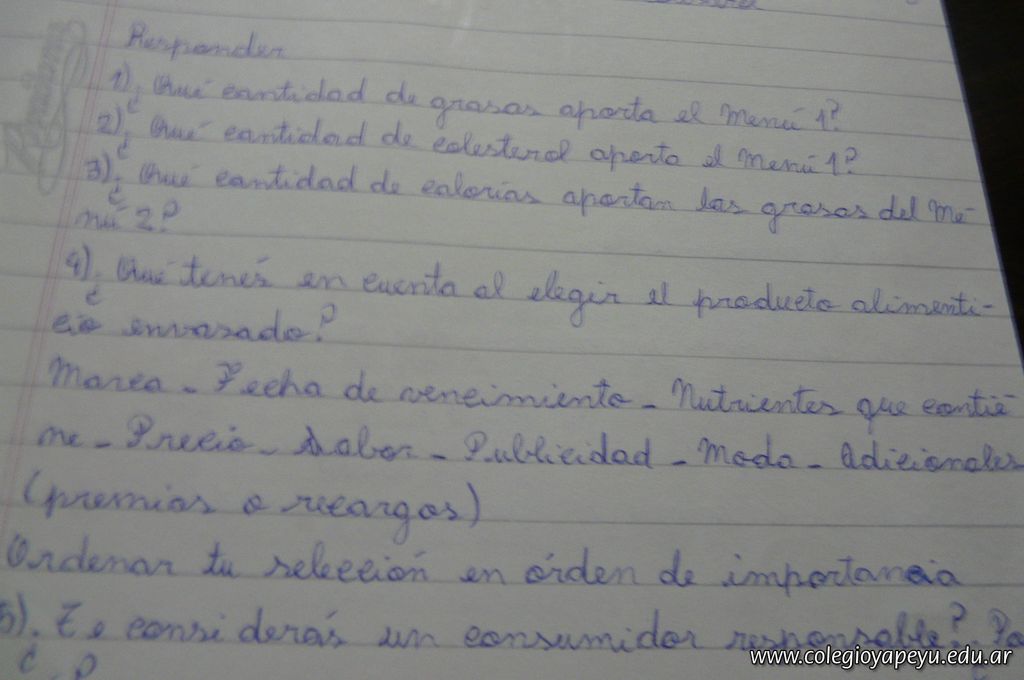 Responder
1). ¿Qué cantidad de grasas aporta el Menú 1?
2). ¿Qué cantidad de colesterol aporta el Menú 1?
3). ¿Qué cantidad de calorías aportan las grasas del Me-
nú 2?
4). ¿Qué tenés en cuenta al elegir el producto alimenti-
cio envasado?
Marca - Fecha de vencimiento - Nutrientes que contie
ne - Precio - Sabor - Publicidad - Moda - Adicionales
(premios o recargos)
Ordenar tu selección en órden de importancia
5). ¿Te considerás un consumidor responsable? ¿Po
?
www.colegioyapeyu.edu.ar